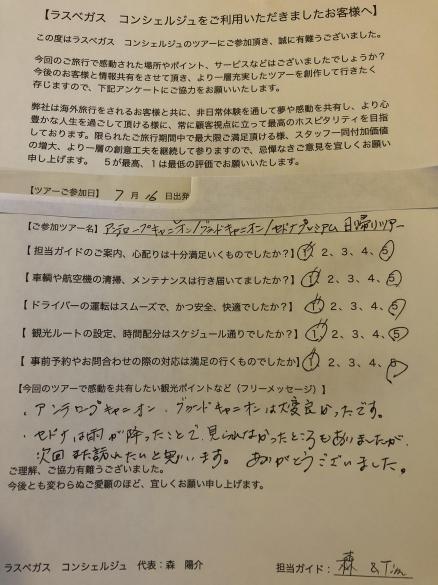 【ラスベガス　コンシェルジュをご利用いただきましたお客様へ】
この度はラスベガス　コンシェルジュのツアーにご参加頂き、誠に有難うございました。
今回のご旅行で感動された場所やポイント、サービスなどはございましたでしょうか？
今後のお客様と情報共有をさせて頂き、より一層充実したツアーを創作して行きたく
存じますので、下記アンケートにご協力をお願いいたします。
弊社は海外旅行をされるお客様と共に、非日常体験を通して夢や感動を共有し、より心
豊かな人生を過ごして頂ける様に、常に顧客視点に立って最高のホスピタリティを目指
しております。限られたご旅行期間中で最大限ご満足頂ける様、スタッフ一同付加価値
の増大、より一層の創意工夫を継続して参りますので、忌憚なきご意見を宜しくお願い
申し上げます。　５が最高、１は最低の評価でお願いいたします。
【ツアーご参加日】 7 月 16 日出発
【ご参加ツアー名】アンテロープキャニオン/グランドキャニオン/セドナプレミアム 日帰りツアー
【 担当ガイドのご案内、心配りは十分満足いくものでしたか？】1、2、3、4、5
【 車輌や航空機の清掃、メンテナンスは行き届いてましたか？】1、2、3、4、5
【 ドライバーの運転はスムーズで、かつ安全、快適でしたか？】1、2、3、4、5
【 観光ルートの設定、時間配分はスケジュール通りでしたか？】1、2、3、4、5
【 事前予約やお問合わせの際の対応は満足の行くものでしたか】1、2、3、4、5
【今回のツアーで感動を共有したい観光ポイントなど（フリーメッセージ）】
・アンテロープキャニオン・グランドキャニオンは大変良かったです。
・セドナは雨が降ったことで、見られなかったところもありましたが、
次回また訪れたいと思います。 ありがとうございました。
ご理解、ご協力有難うございました。
今後とも変わらぬご愛顧のほど、宜しくお願い申し上げます。
ラスベガス　コンシェルジュ　代表：森　陽介
担当ガイド： 森 & Tim